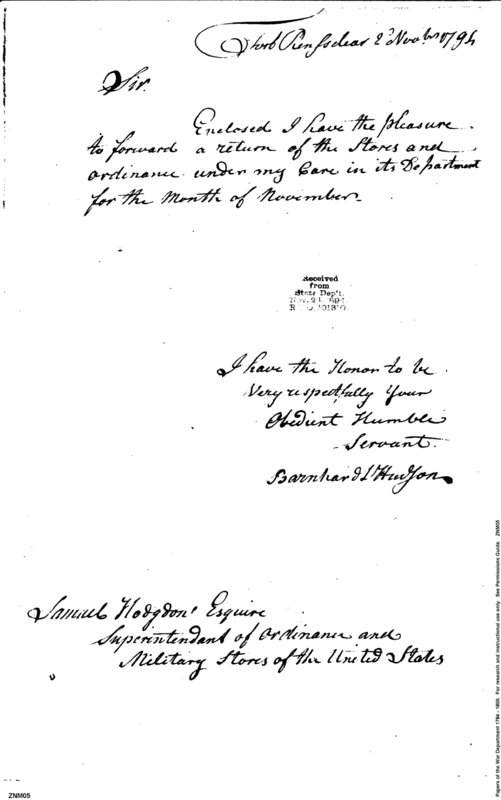 Fort Renssclear 2d Novbr 1794
Sir.
Enclosed I have the pleasure
to forward a return of the Stores and
Ordinance under my Care in its Department
for the Month of November.
Received
from
State Dep't.
I have the Honor to be
Very respectfully Your
Obedient Humble
Servant.
Hudson
Samuel Hodgdon Esquire
Superintendant of Ordinance and
Military Stores of the United States
ZNM05
Papers of the War Department 1784 - 1800. For research and instructional use only. See Permissions Guide. ZNM05